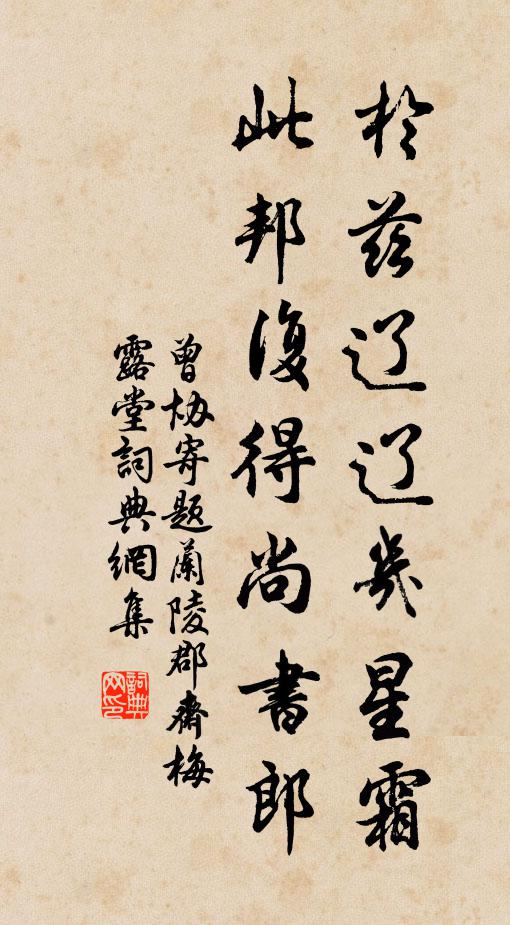 於兹辽辽幾星霜
此邦復得尚書郎
曾协寄題蘭陵郡齋梅
露堂詞典網集
詞典
网印